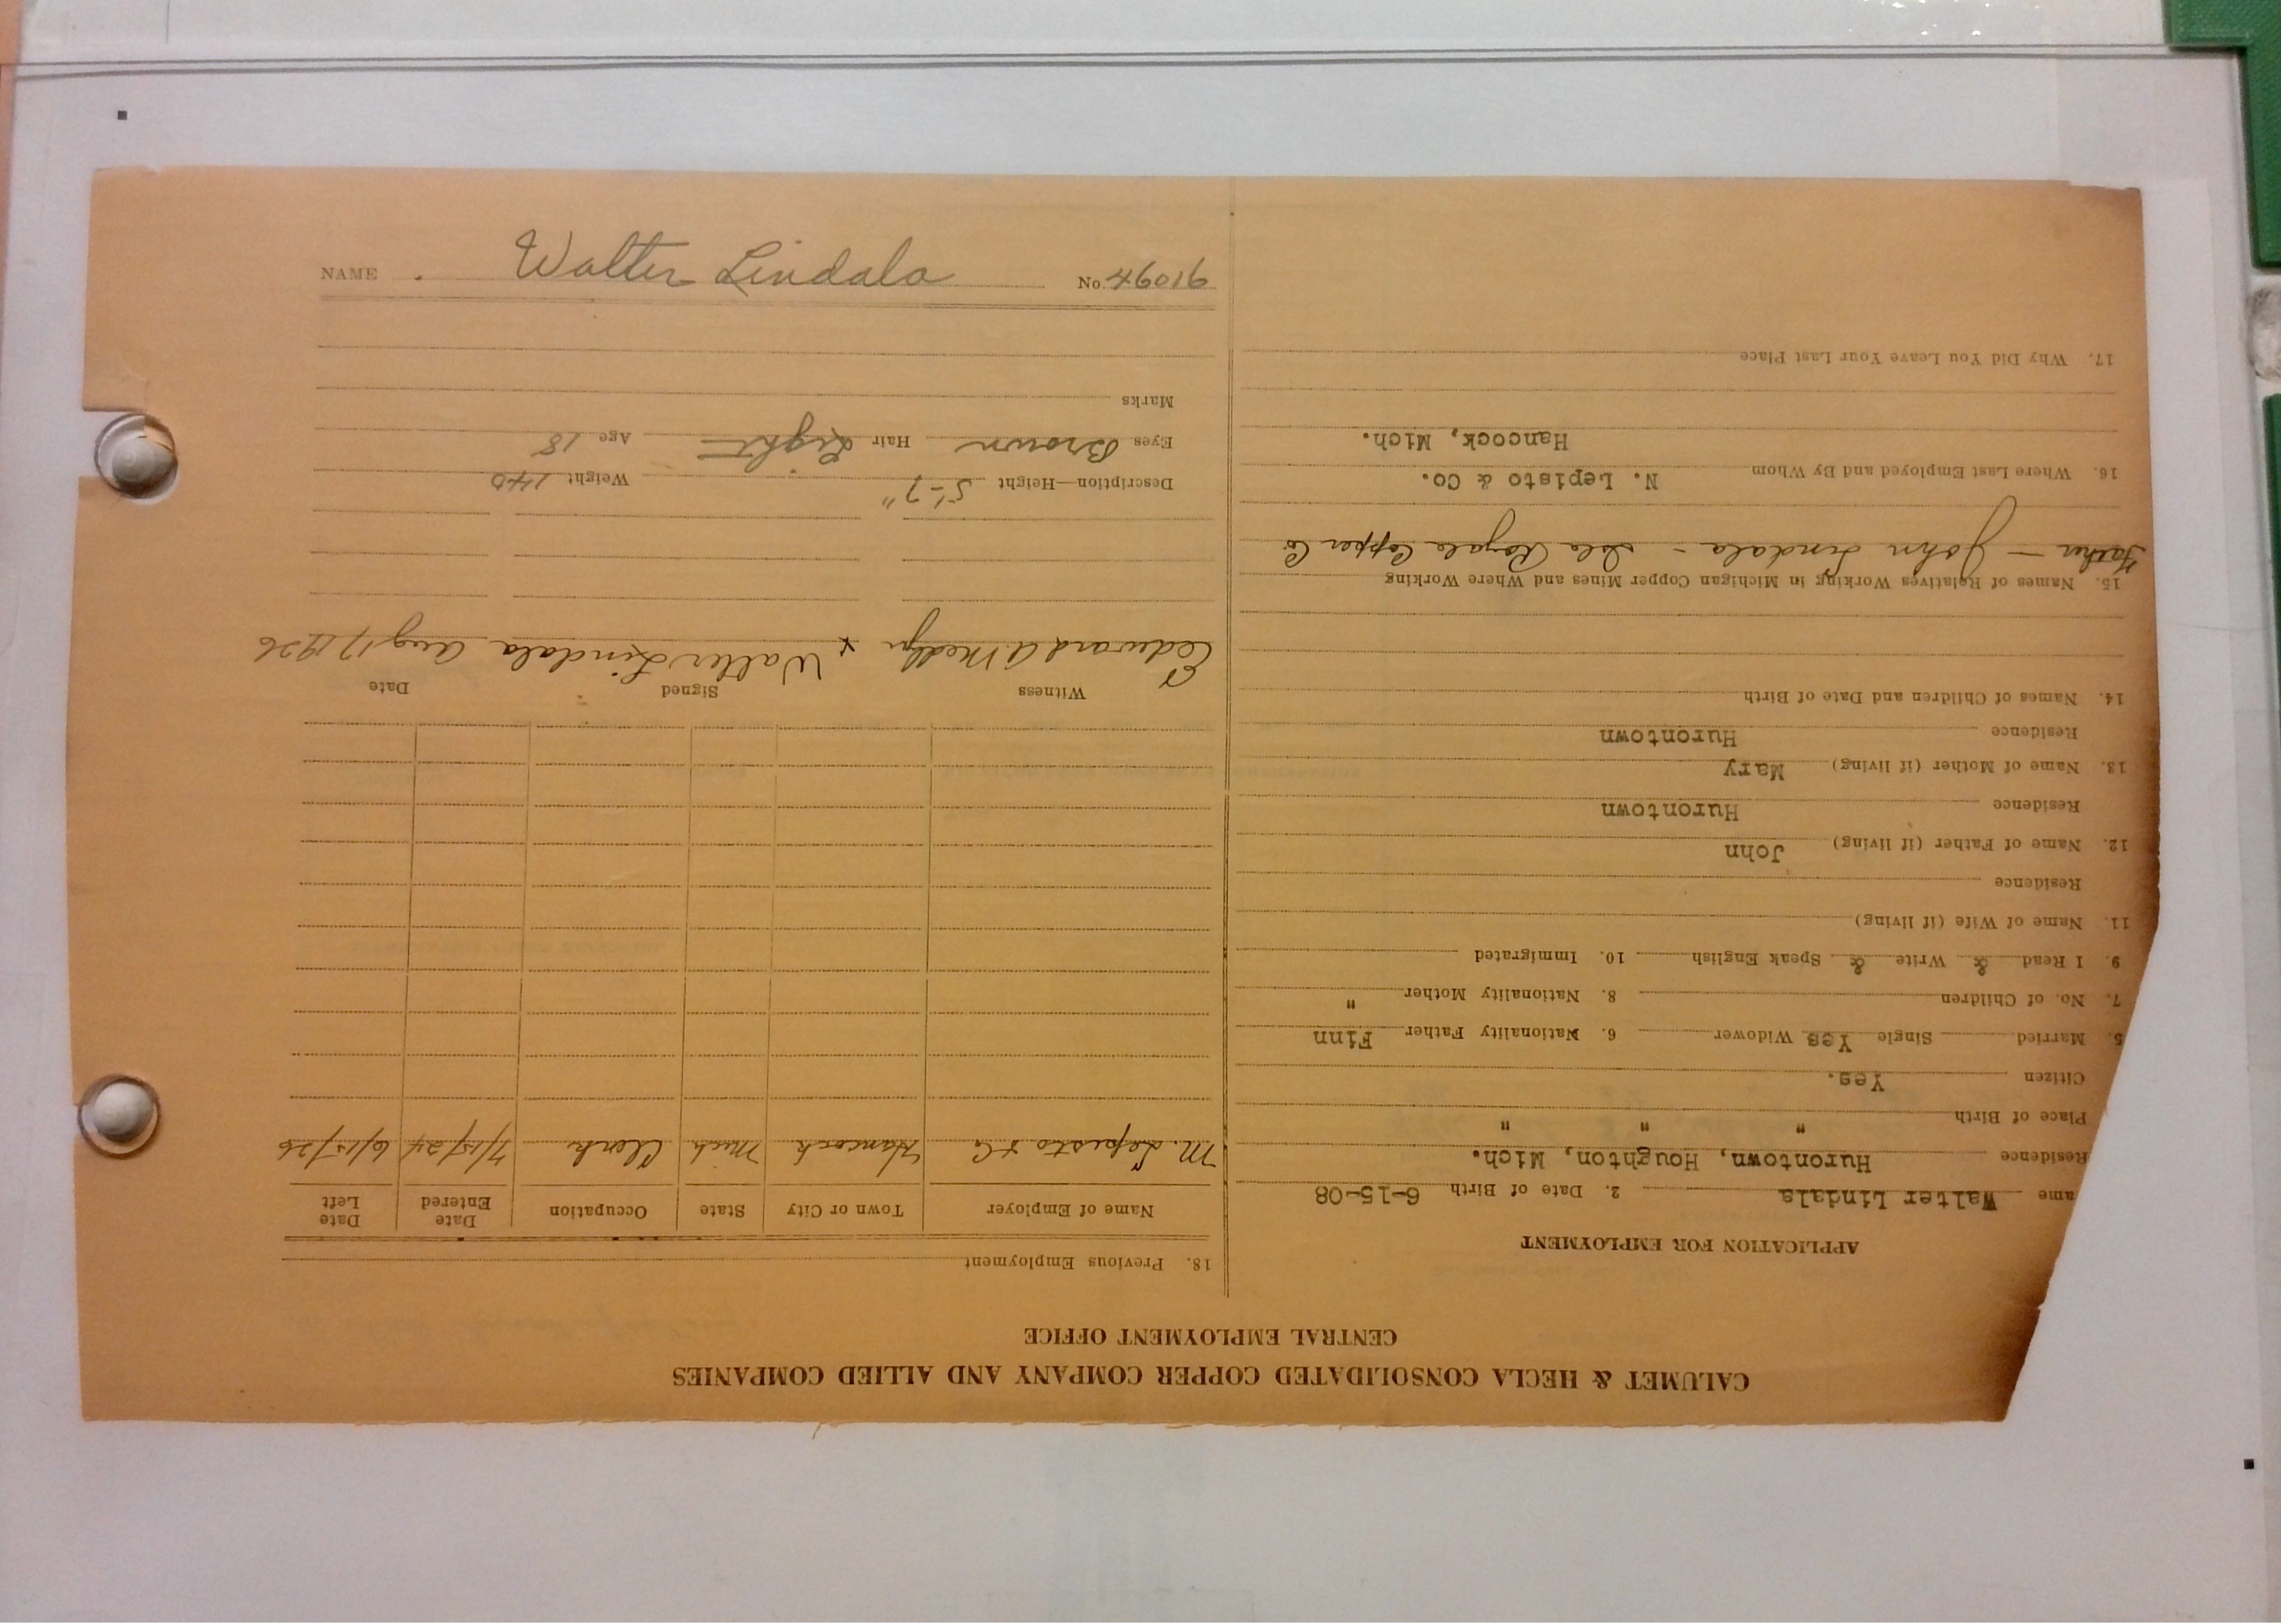 CALUMET & HECLA CONSOLIDATED COPPER COMPANY AND ALLIED COMPANIES
CENTRAL EMPLOYMENT OFFICE
APPLICATION FOR EMPLOYMENT
ame Walter Lindala 2. Date of Birth 6-15-08
Residence Hurontown, Houghton, Mich.
Place of Birth " " "
Citizen Yes.
5. Married Single Yes Widower 6. Nationality Father Finn
7. No. of Children 8. Nationality Mother "
9. I Read & Write & Speak English 10. Immigrated
11. Name of Wife (if living)
Residence
12. Name of Father (if living) John
Residence Hurontown
13. Name of Mother (if living) Mary
Residence Hurontown
14. Names of Children and Date of Birth
15. Names of Relatives Working in Michigan Copper Mines and Where Working
Father — John Lindala - Isle Royale Copper Co
16. Where Last Employed and By Whom N. Lepisto & Co.
Hancock, Mich.
17. Why Did You Leave Your Last Place
18. Previous Employment
Name of Employer Town or City State Occupation Date Entered Date Left
M. Lepisto & Co Hancock Mich Clerk 7/15/24 6/15/26
Witness Signed Date
Edward A. x Walter Lindala Aug 17 1926
Description—Height 5'-7" Weight 140
Eyes Brown Hair Light Age 18
Marks
NAME Walter Lindala No. 46016